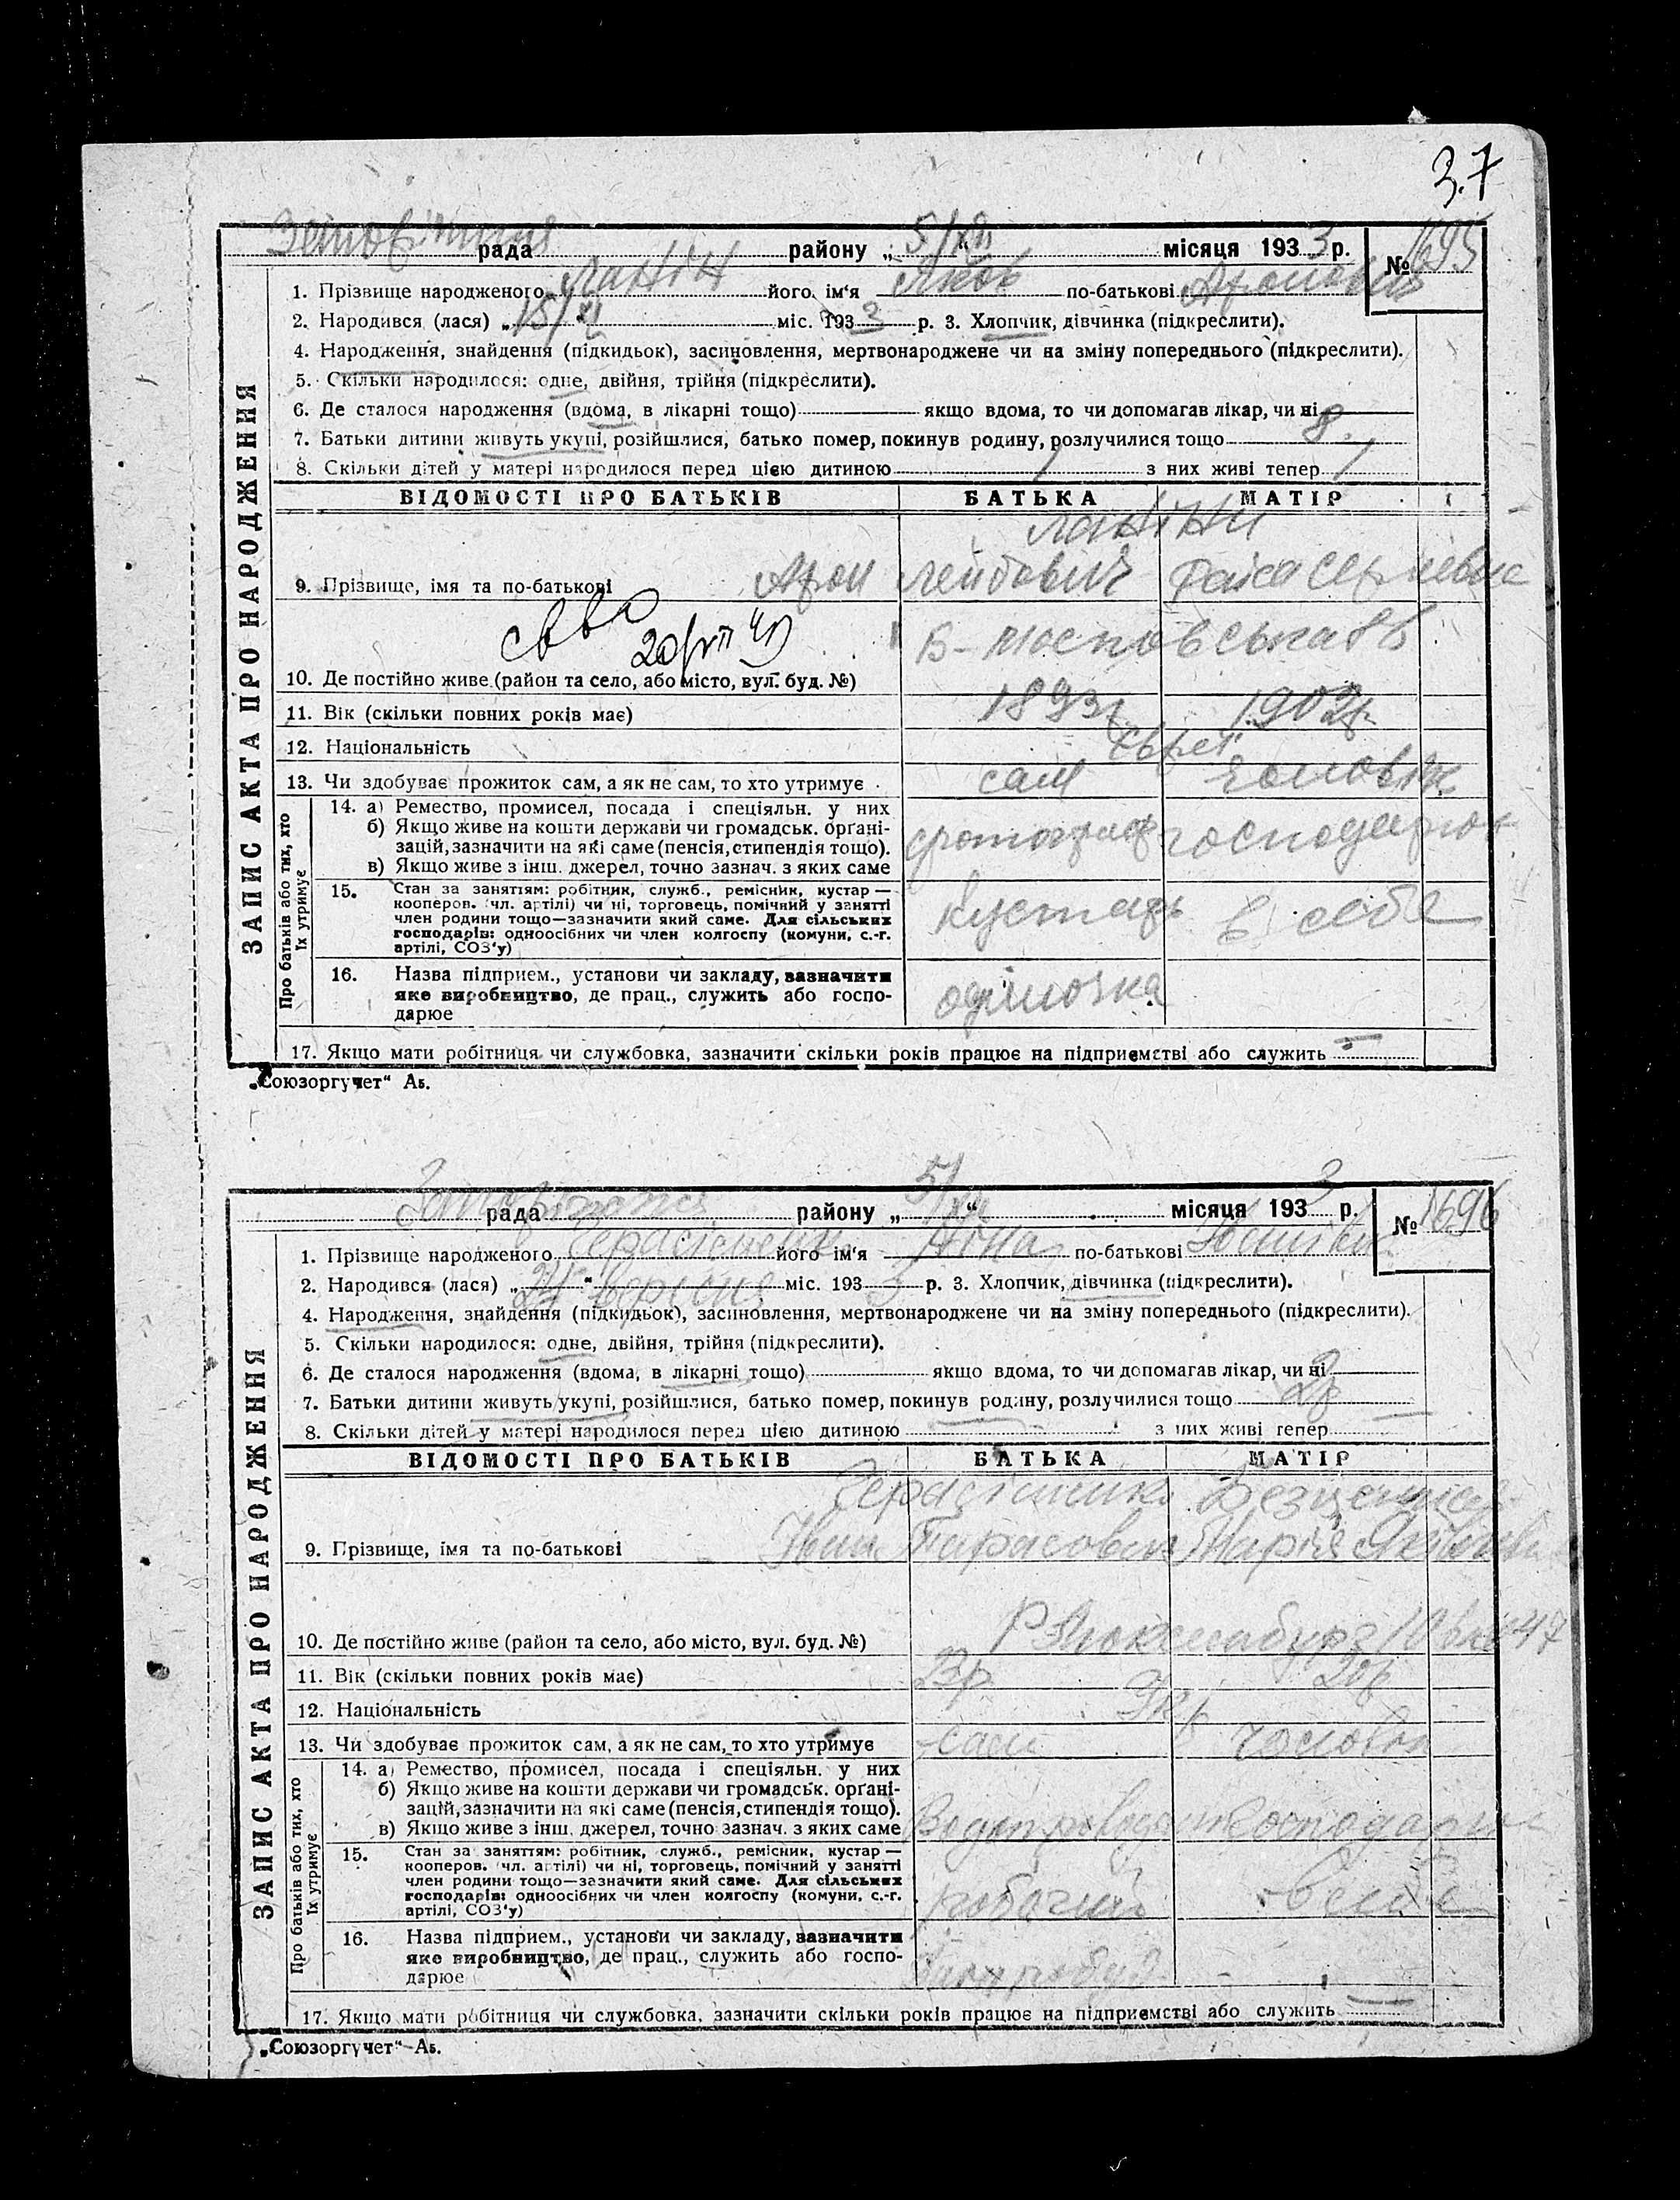 37
рада району „ 5/XII “ місяця 1933 р. № 1695
1. Прізвище народженого Ланін його ім‘я Яков по-батькові Аронович
2. Народився (лася) „ 15/XI “ міс. 1933 р. 3. Хлопчик, дівчинка (підкреслити).
4. Народження, знайдення (підкидьок), засиновлення, мертвонароджене чи на зміну попереднього (підкреслити).
5. Скільки народилося: одне, двійня, трійня (підкреслити).
6. Де сталося народження (вдома, в лікарні тощо) якщо вдома, то чи допомагав лікар, чи ні
7. Батьки дитини живуть укупі, розійшлися, батько помер, покинув родину, розлучилися тощо 8
8. Скільки дітей у матері народилося перед цією дитиною 1 з них живі тепер 1
ЗАПИС АКТА ПРО НАРОДЖЕННЯ
ВІДОМОСТІ ПРО БАТЬКІВ БАТЬКА МАТІР
Ланіни
9. Прізвище, імя та по-батькові Арон Лейбович Раїса
10. Де постійно живе (район та село, або місто, вул. буд. №)
11. Вік (скільки повних років має) 1893р 1902р.
12. Національність Євреї
13. Чи здобуває прожиток сам, а як не сам, то хто утримує сам чоловік
Про батьків або тих, хто їх утримує
14. а) Ремество, промисел, посада і спеціяльн. у них
б) Якщо живе на кошти держави чи громадськ. орґані-
зацій, зазначити на які саме (пенсія, стипендія тощо).
в) Якщо живе з інш. джерел, точно зазнач. з яких саме
фотограф господарює
15. Стан за заняттям: робітник, служб., ремісник, кустар —
кооперов. (чл. артілі) чи ні, торговець, помічний у занятті
член родини тощо—зазначити який саме. Для сільських
господарів: одноосібних чи член колгоспу (комуни, с.-г.
артілі, СОЗ‘у)
кустарь в себе
16. Назва підприєм., установи чи закладу, зазначити
яке виробництво, де прац., служить або госпо-
дарює
одиночка
17. Якщо мати робітниця чи службовка, зазначити скільки років працює на підприємстві або служить —
„Союзоргучет“ Аб.
рада району „ 5/XII “ місяця 1933 р. № 1696
1. Прізвище народженого його ім‘я по-батькові
2. Народився (лася) „ “ вересня міс. 1933 р. 3. Хлопчик, дівчинка (підкреслити).
4. Народження, знайдення (підкидьок), засиновлення, мертвонароджене чи на зміну попереднього (підкреслити).
5. Скільки народилося: одне, двійня, трійня (підкреслити).
6. Де сталося народження (вдома, в лікарні тощо) якщо вдома, то чи допомагав лікар, чи ні
7. Батьки дитини живуть укупі, розійшлися, батько помер, покинув родину, розлучилися тощо 2р
8. Скільки дітей у матері народилося перед цією дитиною — з них живі тепер —
ЗАПИС АКТА ПРО НАРОДЖЕННЯ
ВІДОМОСТІ ПРО БАТЬКІВ БАТЬКА МАТІР
9. Прізвище, імя та по-батькові Іван Тарасович Марія
10. Де постійно живе (район та село, або місто, вул. буд. №) Р Люксембург 47
11. Вік (скільки повних років має) 23р
12. Національність Укр
13. Чи здобуває прожиток сам, а як не сам, то хто утримує сам чоловік
Про батьків або тих, хто їх утримує
14. а) Ремество, промисел, посада і спеціяльн. у них
б) Якщо живе на кошти держави чи громадськ. орґані-
зацій, зазначити на які саме (пенсія, стипендія тощо).
в) Якщо живе з інш. джерел, точно зазнач. з яких саме
Водопровідник господарює
15. Стан за заняттям: робітник, служб., ремісник, кустар —
кооперов. (чл. артілі) чи ні, торговець, помічний у занятті
член родини тощо—зазначити який саме. Для сільських
господарів: одноосібних чи член колгоспу (комуни, с.-г.
артілі, СОЗ‘у)
робочий в себе
16. Назва підприєм., установи чи закладу, зазначити
яке виробництво, де прац., служить або госпо-
дарює
17. Якщо мати робітниця чи службовка, зазначити скільки років працює на підприємстві або служить —
„Союзоргучет“—Аб.